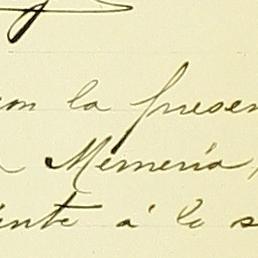 con la presen
a Memoria,
iente á lo s